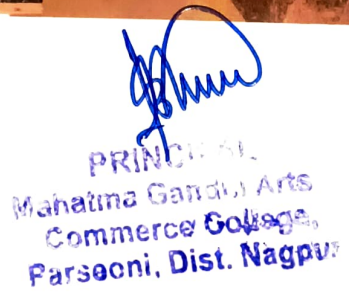 PRINCIPAL
Mahatma Gandhi Arts
Commerce College,
Parseoni, Dist. Nagpur